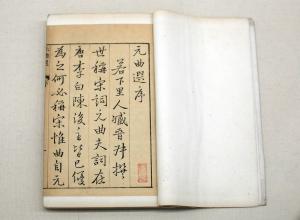 元曲選序
若下里人臧晉叔撰
世稱宋詞元曲夫詞在
唐李白陳後主皆已優
為之何必稱宋惟曲自元